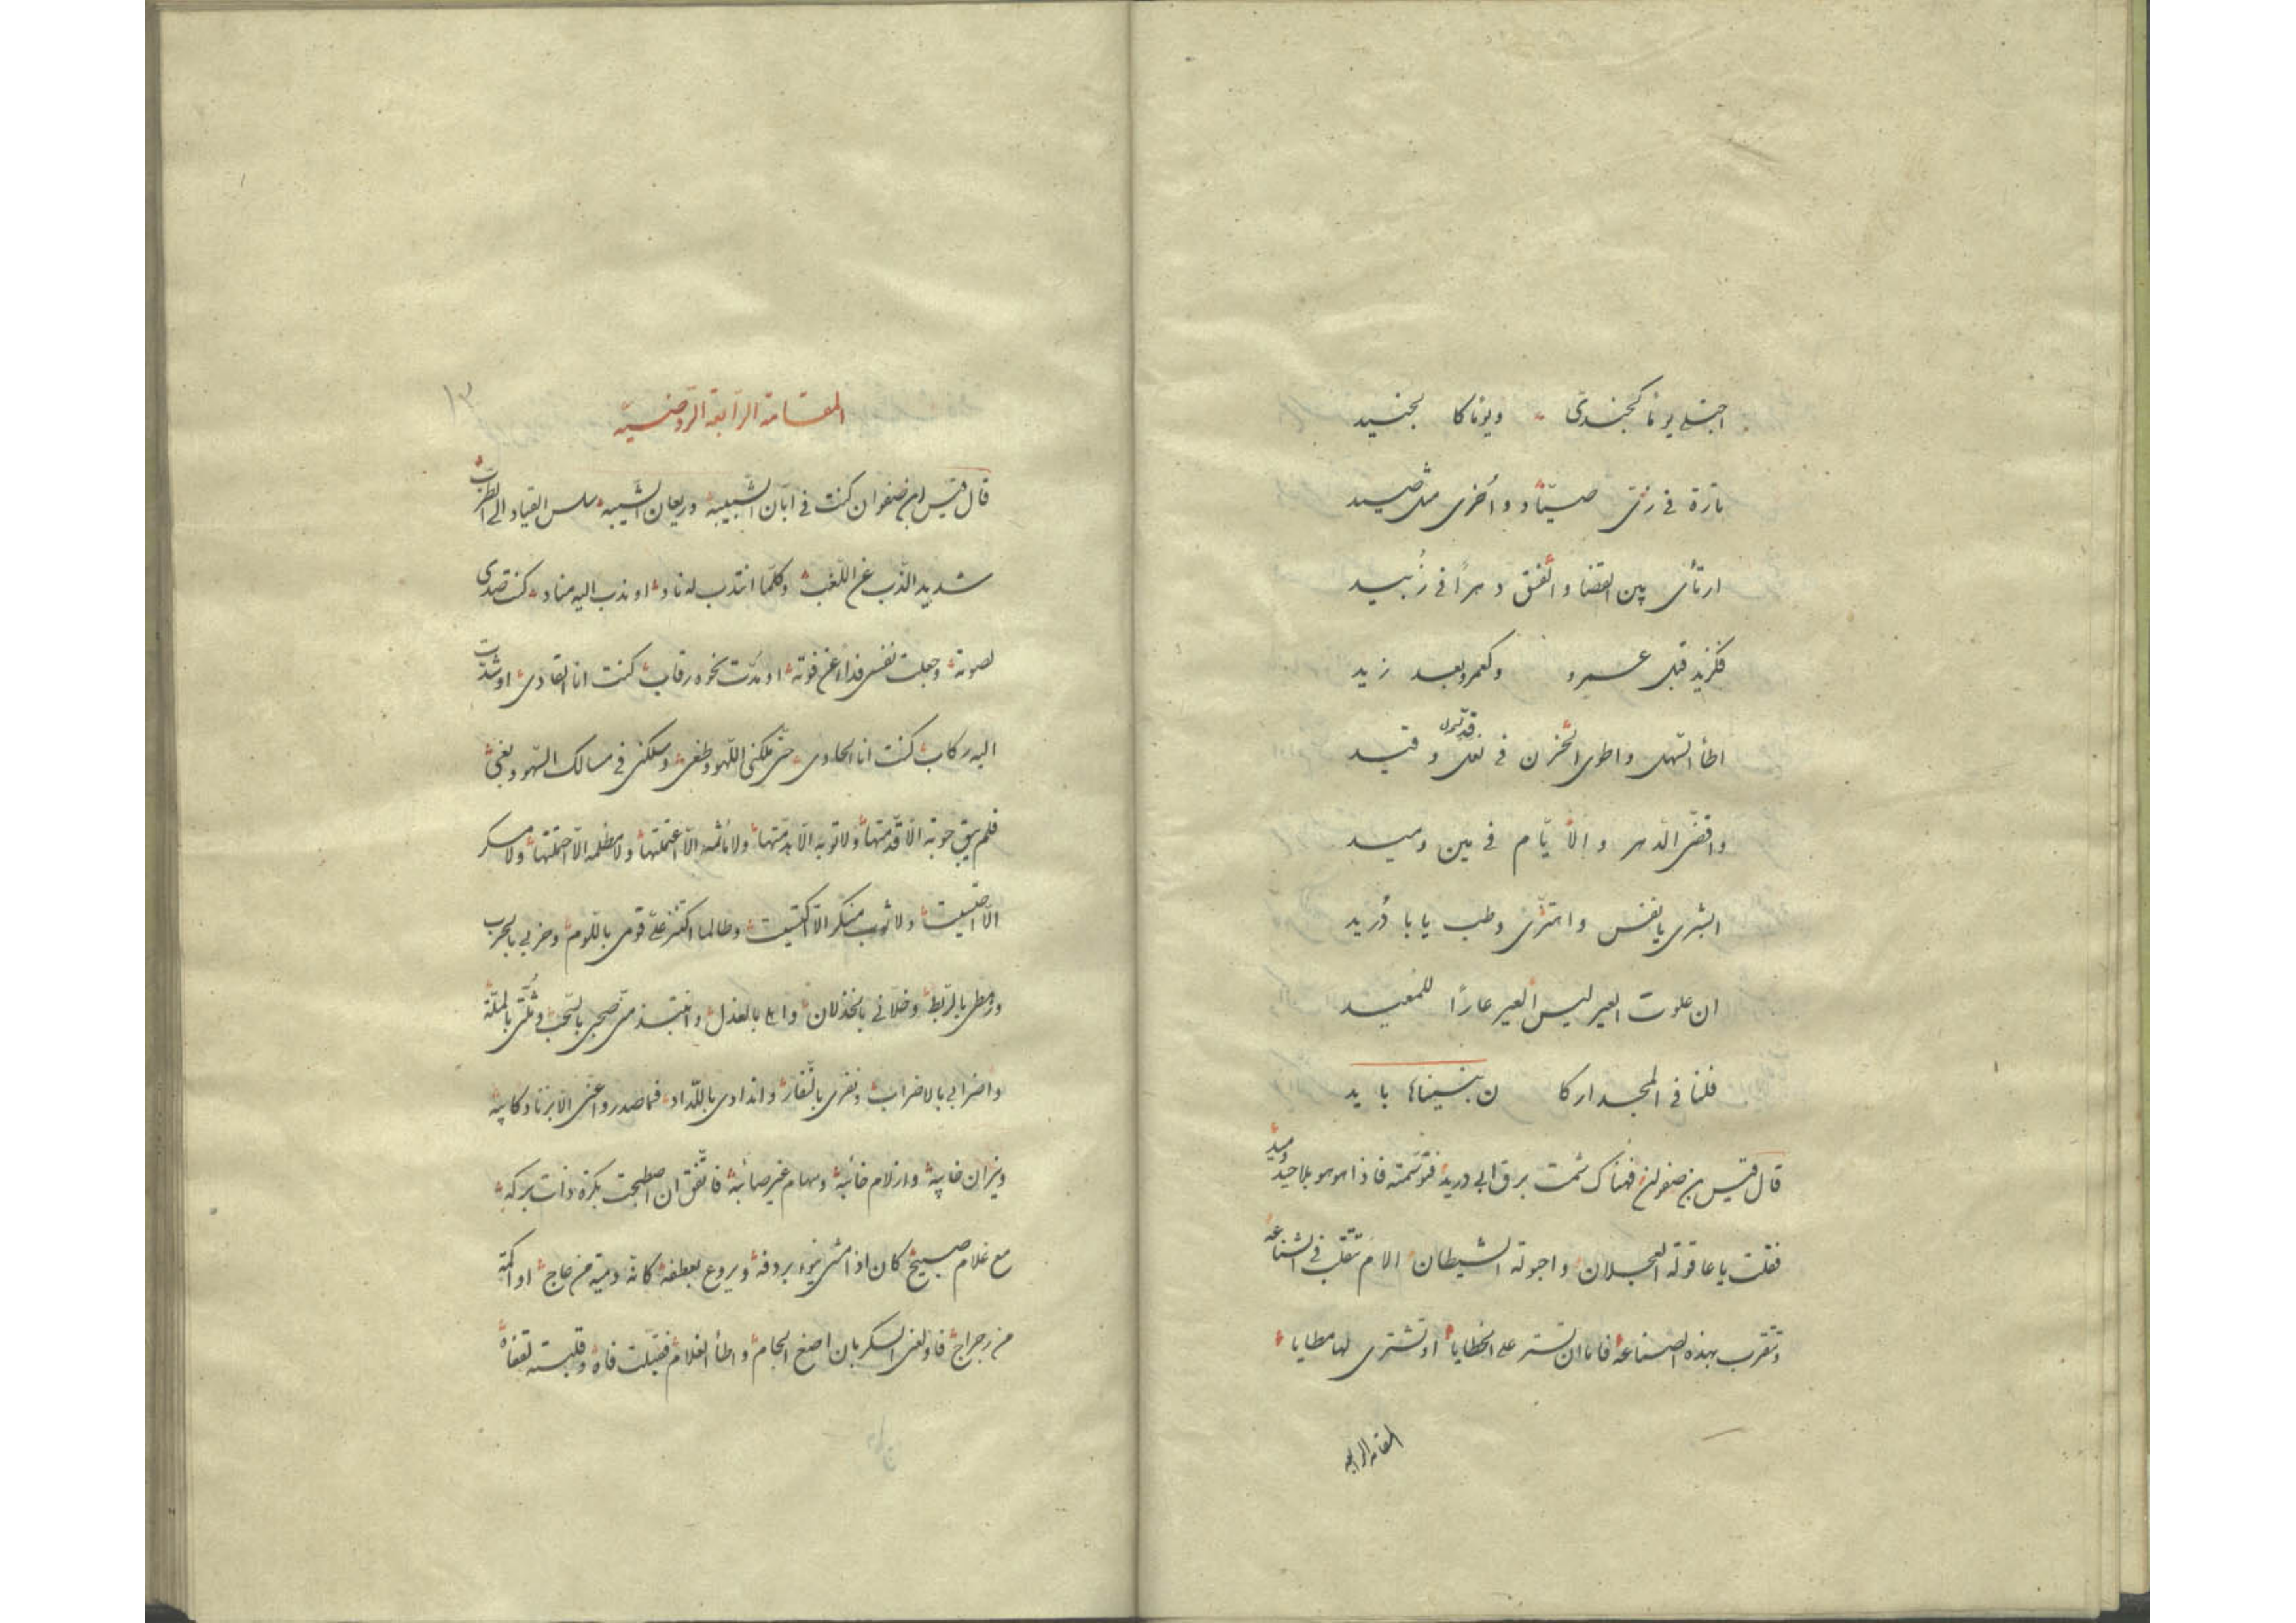 اجتلی یوما کجندی ویوما کا لجنید
تارة فی زی صیّاد واخری مثل صید
ارتأی بین القضا والفتق دهرا فی زبید
فکزید قبل عمرو وکعمرو بعد زید
اطأ السهل واطوی الحزن فی نعل وقید
واقضّی الدهر والأیّام فی مین ومید
ابشری یا نفس واهتزّی وطب یا با دُرید
ان علوت العیر لیس العیر عارًا للمُعید
فلنا فی المجد ارکا ن بنیناها باید
قال قیس بن صفوان فهناک شمت برق ابی درید فتوسمته فاذا هو هو بلا حید ومید
فقلت یا عاقولة العجلان واحبولة الشیطان الام تتقلب فی الشناعة
وتتقرب بهذه الصناعة فاما ان تستر علی الخطایا او تشتری لها مطایا
المقامة الرابعة
المقامة الرابعة الروضیة
١٣
قال قیس ابن صفوان کنت فی ابّان الشبیبة وریعان الشیبة سلس القیاد الی الطرب
شدید الذّب عن اللعب وکلّما انتدب له ناد او ندب الیه مناد کنت صدی
لصوته وجعلت نفسی فداء عن فوته او مدّت نحوه رقاب کنت انا القادی او شدّت
الیه رکاب کنت انا الحادی حتی ملکنی اللهو وطغی وسلکنی فی مسالک السهو وبغی
فلم یبق حوبة الّا قدّمتها ولا توبة الّا هدمتها ولا مأثمة الّا اعتملتها ولا مظلمة الّا احتملتها ولا مسکر
الّا احتسیت ولا ثوب منکر الّا اکتسیت وطالما اکتنز علیّ قومی باللوم وحزبی بالحرب
ورهطی بالربط وخلّانی بالخذلان واهلی بالعذل وانتبذ منّی صحبی بالسّحب وثلّتی بالملّة
واضرابی بالاضراب ونفری بالنّفار واندادی باللّداد فما صدروا عنّی الّا بزناد کابیة
ونیران خابیة وازلام خائبة وسهام غیر صائبة فاتّفق ان اصطحبت بکرة ذات برکة
مع غلام صبیح کان اذا مشی ینوء بردفه ویروع بعطفه کانه دمیة من عاج او اکمة
من رجراج فاولعنی السکر بان اضع الجام واطأ الغلام فقبّلت فاه وقلبته لقفاه